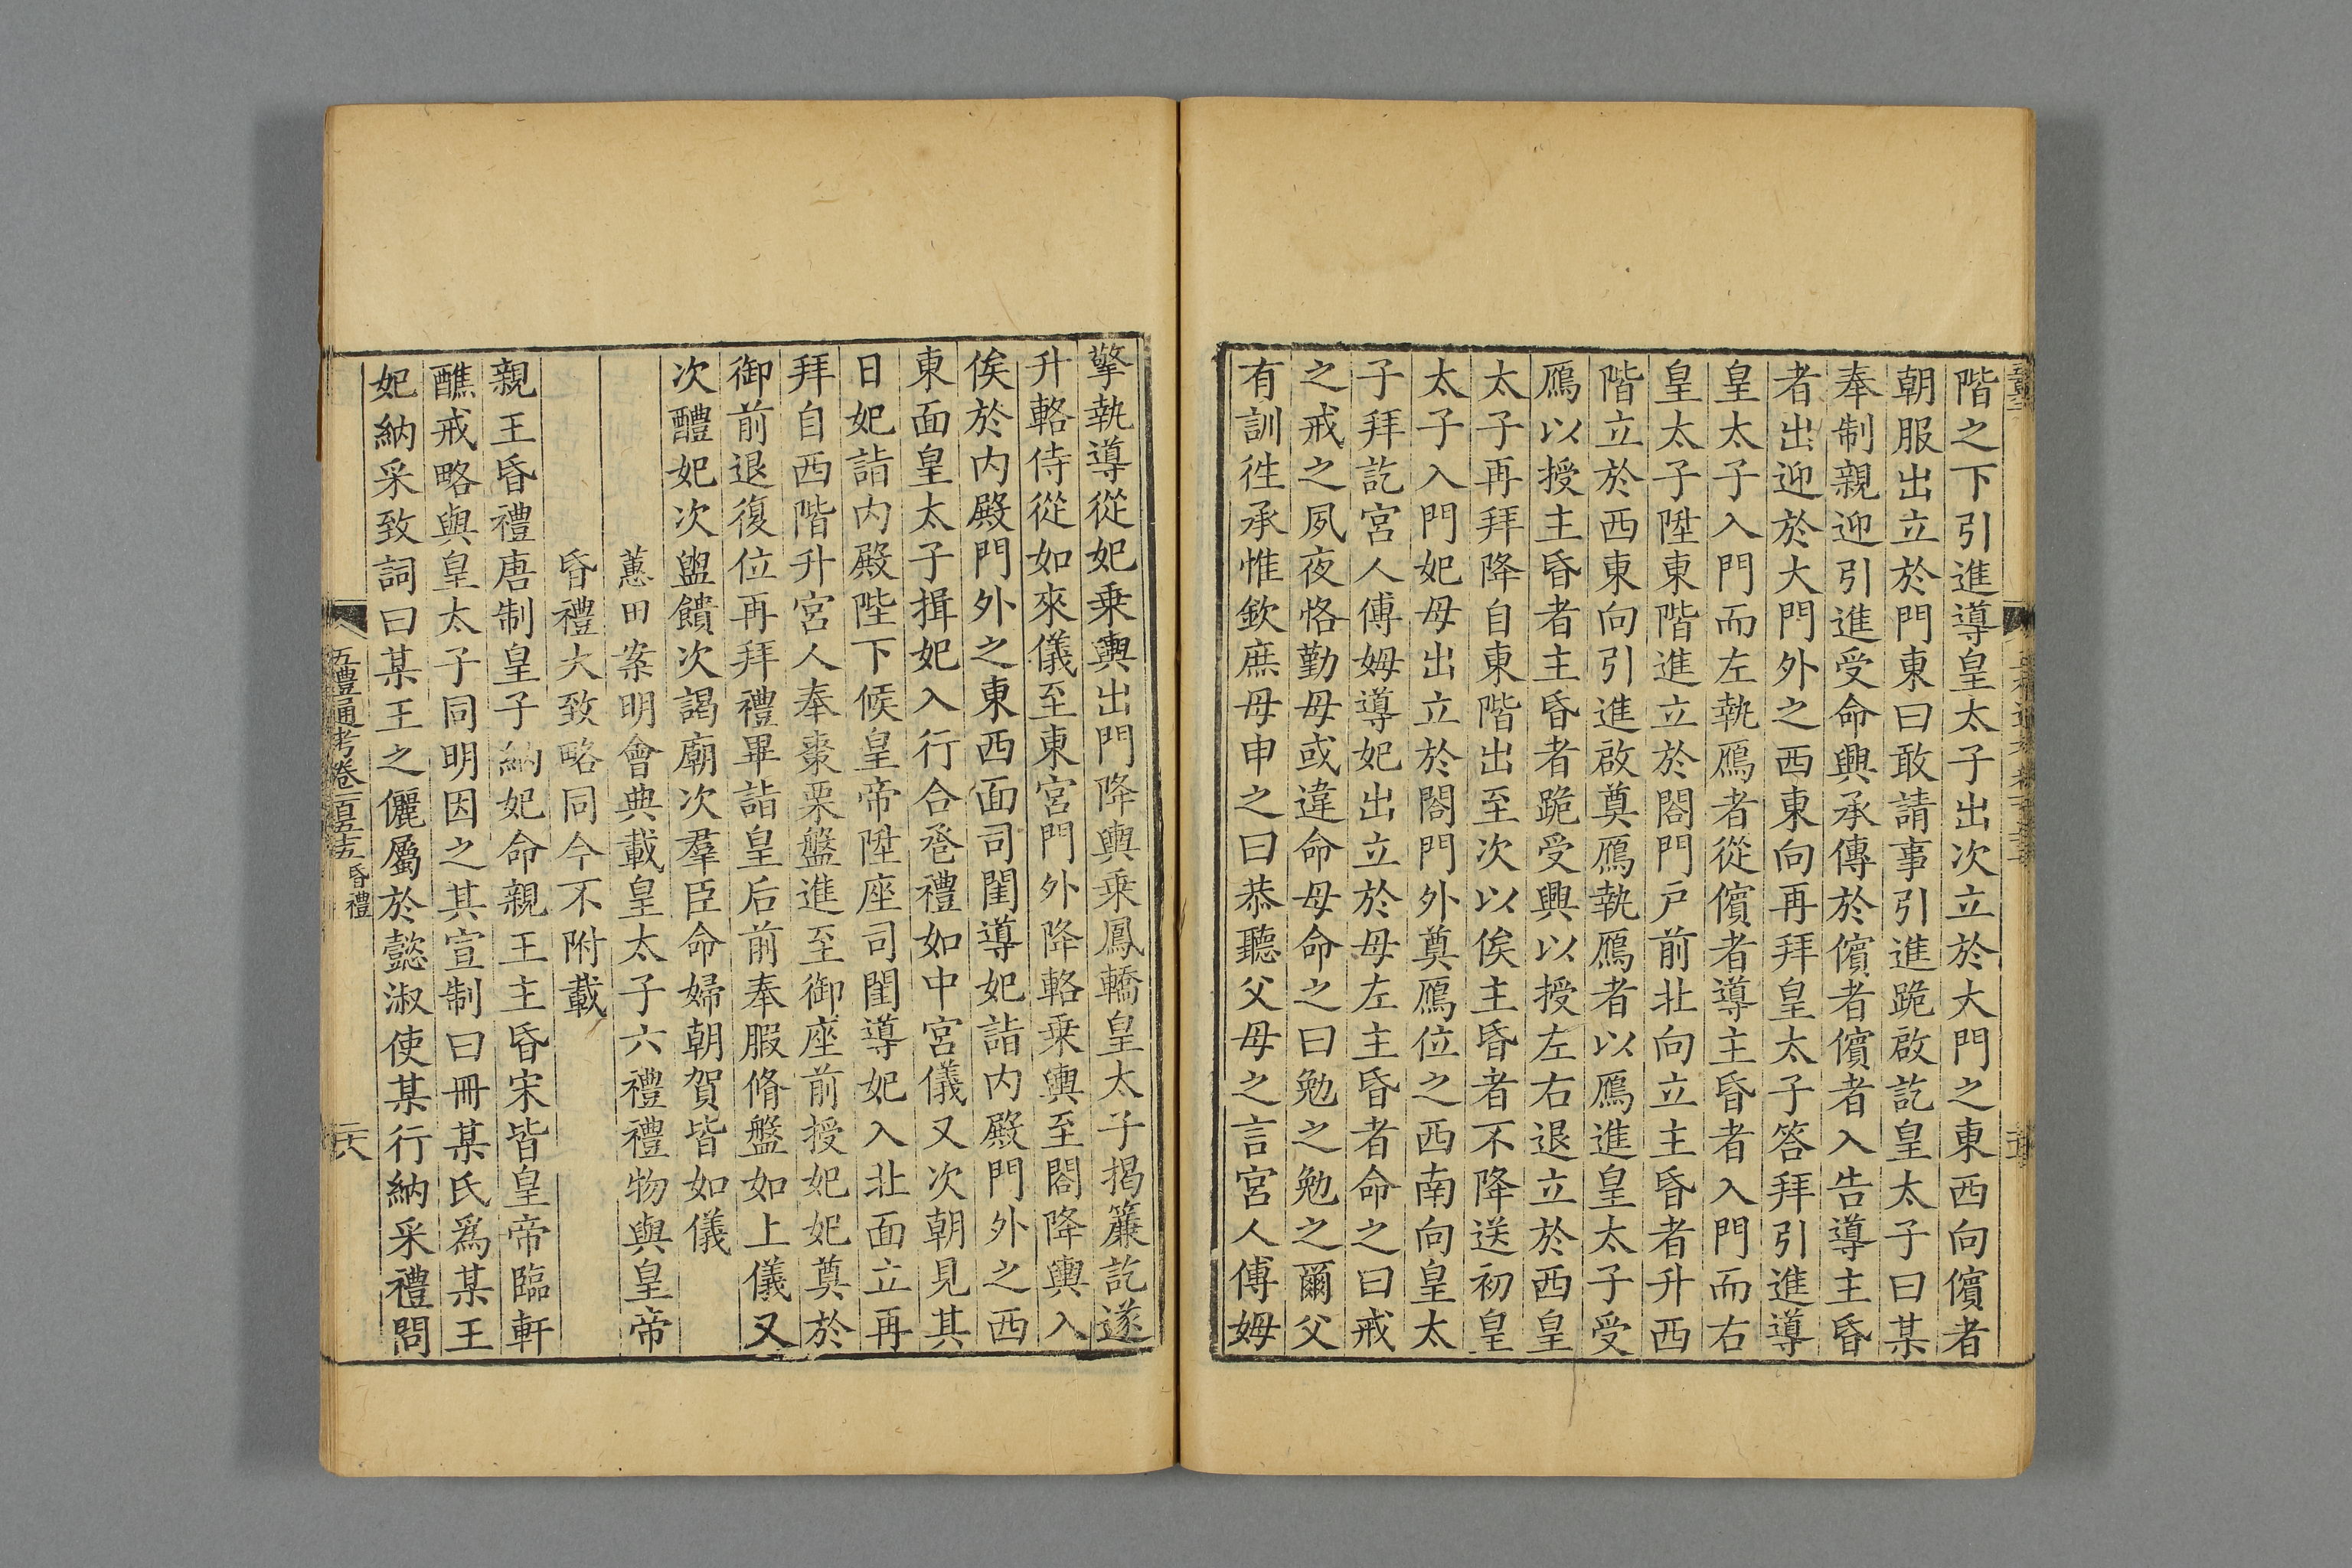 階之下引進導皇太子出次立於大門之東西向儐者
朝服出立於門東曰敢請事引進跪啟訖皇太子曰某
奉制親迎引進受命興承傳於儐者儐者入告導主昏
者出迎於大門外之西東向再拜皇太子答拜引進導
皇太子入門而左執鴈者從儐者導主昏者入門而右
皇太子陞東階進立於閤門戶前北向立主昏者升西
階立於西東向引進啟奠鴈執鴈者以鴈進皇太子受
鴈以授主昏者主昏者跪受興以授左右退立於西皇
太子再拜降自東階出至次以俟主昏者不降送初皇
太子入門妃母出立於閤門外奠鴈位之西南向皇太
子拜訖宮人傅姆導妃出立於母左主昏者命之曰戒
之戒之夙夜恪勤毋或違命母命之曰勉之勉之爾父
有訓徃承惟欽庶母申之曰恭聽父母之言宮人傅姆
擎執導從妃乗輿出門降輿乗鳳轎皇太子揭簾訖遂
升輅侍從如來儀至東宮門外降輅乗輿至閤降輿入
俟於内殿門外之東西面司閨導妃詣内殿門外之西
東面皇太子揖妃入行合卺禮如中宮儀又次朝見其
日妃詣内殿陛下候皇帝陞座司閨導妃入北面立再
拜自西階升宮人奉棗栗盤進至御座前授妃妃奠於
御前退復位再拜禮畢詣皇后前奉腶脩盤如上儀又
次醴妃次盥饋次謁廟次羣臣命婦朝賀皆如儀
蕙田案明會典載皇太子六禮禮物與皇帝
昏禮大致略同今不附載
親王昏禮唐制皇子納妃命親王主昏宋皆皇帝臨軒
醮戒略與皇太子同明因之其宣制曰冊某氏爲某王
妃納采致詞曰某王之儷屬於懿淑使某行納采禮問
五禮通考卷一百五十五 昏禮
二六